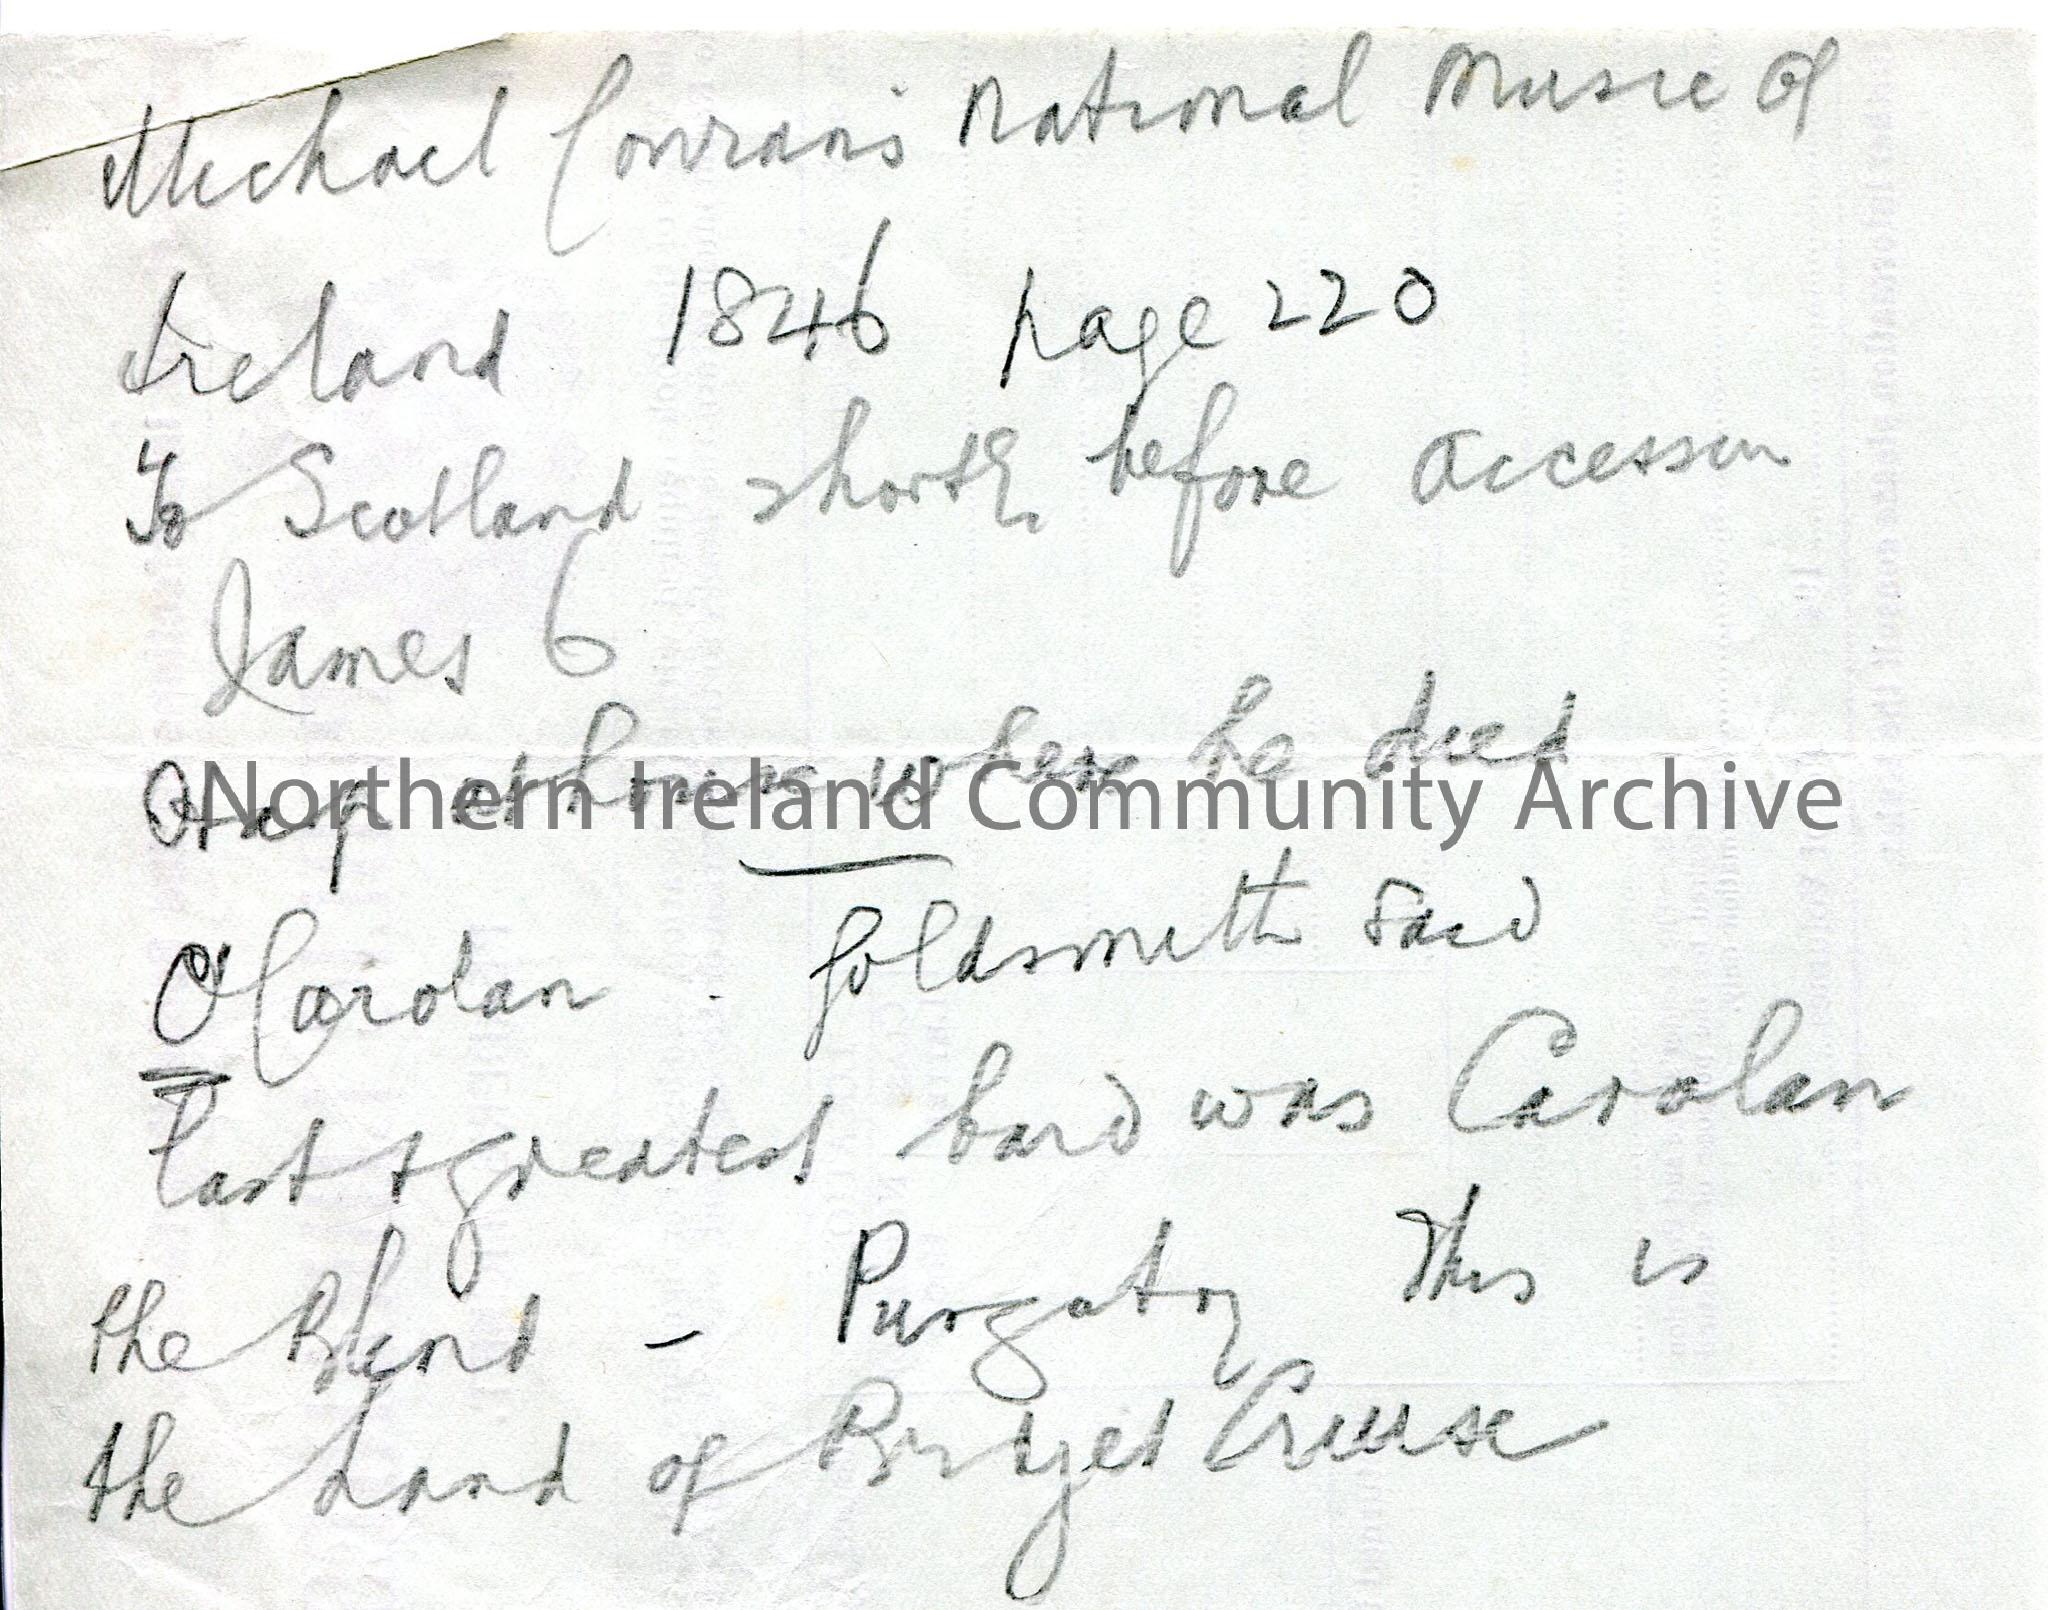 Michael Conran's National Music of
Ireland 1846 page 220
To Scotland shortly before accession
James 6
Harp at house where he died
Northern Ireland Community Archive
O'Carolan . Goldsmith said
Last + greatest bard was Carolan
the Blind – Purgatory This is
the hand of Bridget Cruise